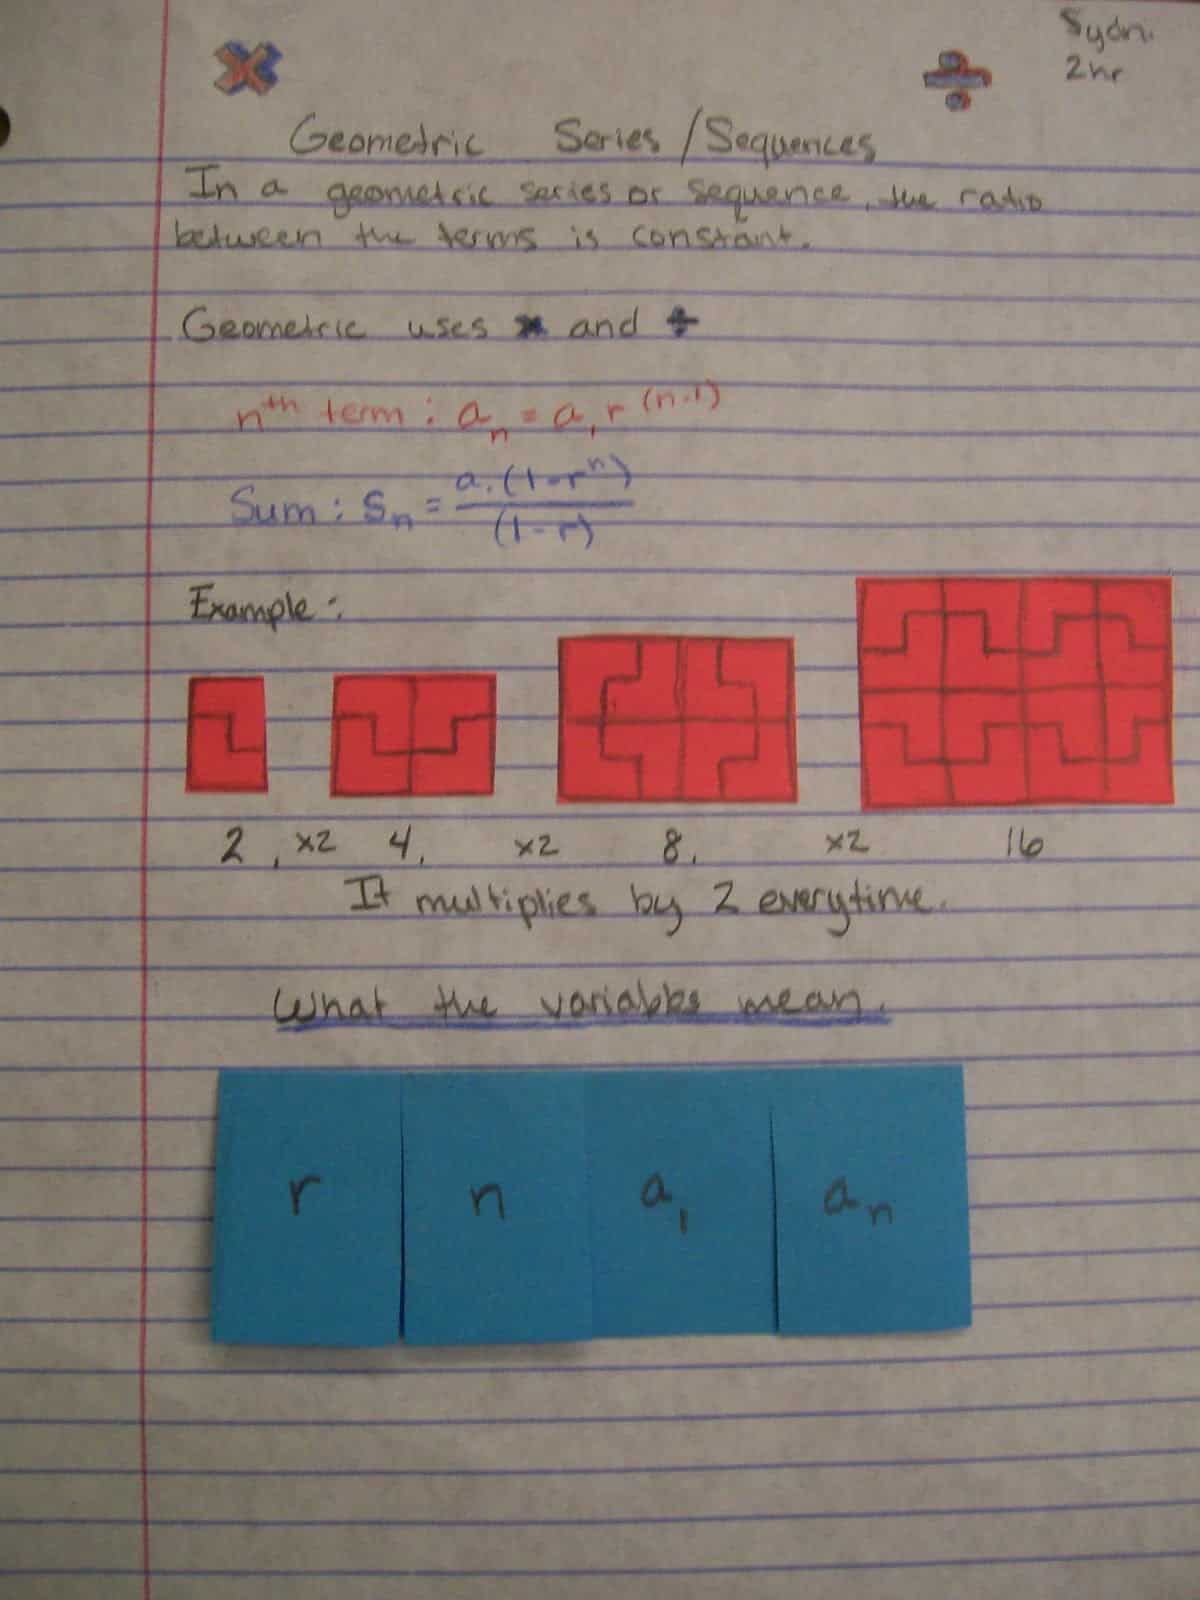 × ÷ Sydn.
2hr
Geometric Series/Sequences
In a geometric series or sequence, the ratio
between the terms is constant.
Geometric uses × and ÷
nᵗʰ term: aₙ = a₁r⁽ⁿ⁻¹⁾
Sum: Sₙ = a₁(1-rⁿ)/(1-r)
Example:
2, ×2 4, ×2 8, ×2 16
It multiplies by 2 everytime.
What the variables mean.
r n a₁ aₙ